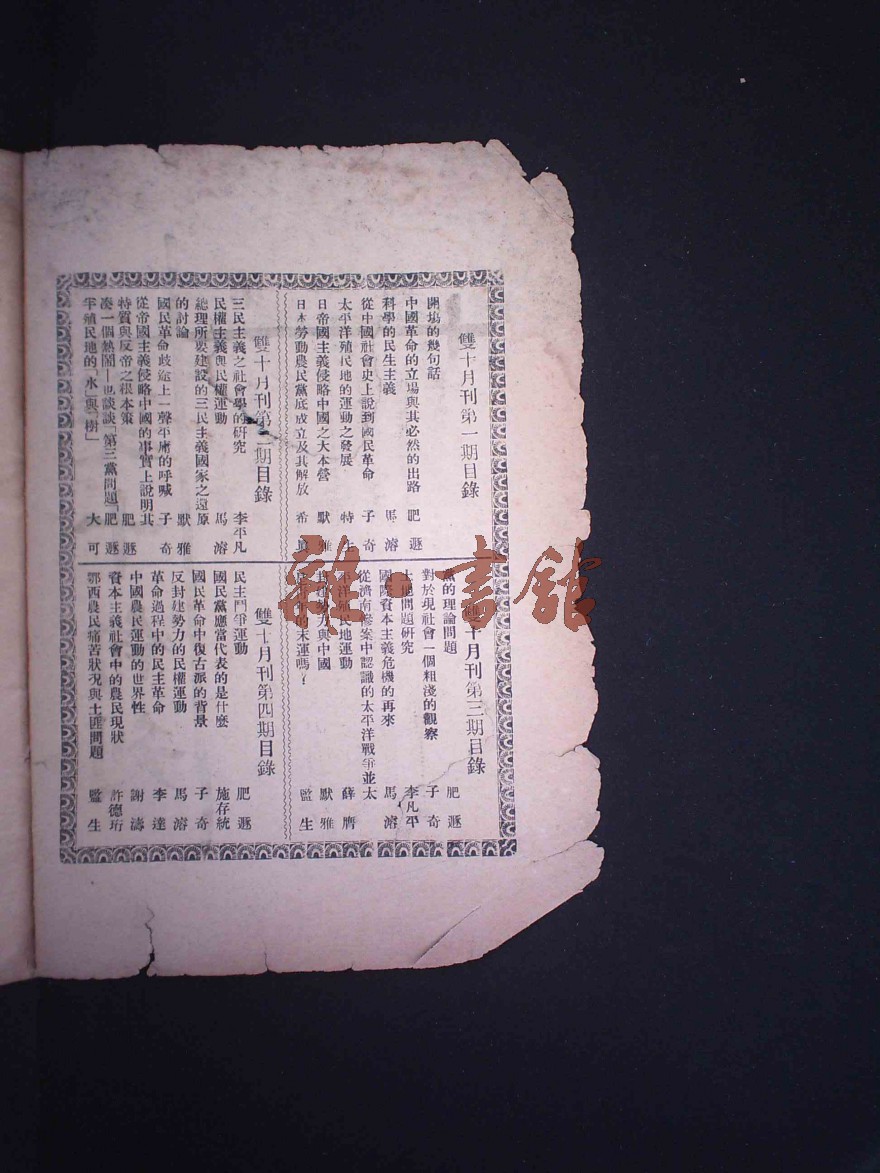 雙十月刊第一期目錄
開場的幾句話
中國革命的立場與其必然的出路 肥遯
科學的民生主義 馬濬
從中國社會史上說到國民革命 子奇
太平洋殖民地的運動之發展 特生
日帝國主義侵略中國之大本營 默雅
日本勞動農民黨底成立及其解放 希真
雙十月刊第二期目錄
三民主義之社會學的研究 李平凡
民權主義與民權運動 馬濬
總理所要建設的三民主義國家之還原
的討論 默雅
國民革命歧途上一聲平庸的呼喊 子奇
從帝國主義侵略中國的事實上說明其
特質與反帝之根本策 肥遯
湊一個熱鬧—也談談「第三黨問題」 肥遯
半殖民地的「水」與「樹」 大可
雙十月刊第三期目錄
黨的理論問題 肥遯
對於現社會一個粗淺的觀察 子奇
土地問題研究 李凡平
國際資本主義危機的再來 馬濬
從濟南慘案中認識的太平洋戰爭並太
平洋殖民地運動 薛儕
勢力與中國 默雅
的末運嗎? 監生
雙十月刊第四期目錄
民主鬥爭運動 肥遯
國民黨應當代表的是什麼 施存統
國民革命中復古派的背景 子奇
反封建勢力的民權運動 馬濬
革命過程中的民主革命 李達
中國農民運動的世界性 謝濤
資本主義社會中的農民現狀 許德珩
鄂西農民痛苦狀況與土匪問題 監生
雜·書館